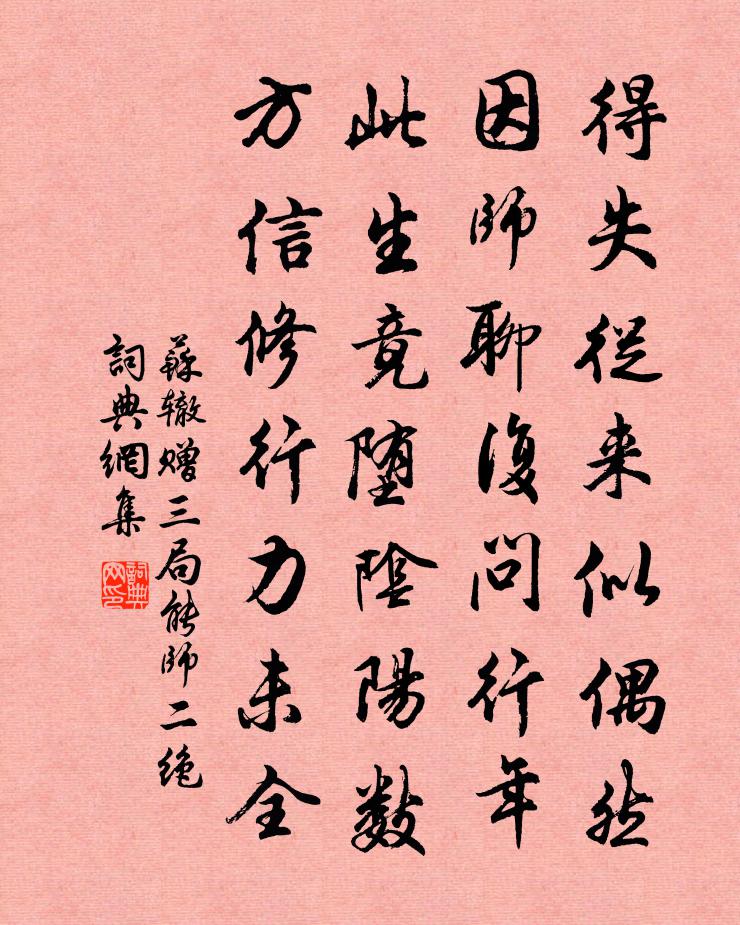 得失從来似偶然
因師聊復問行年
此生竟堕陰陽數
方信修行力未全
蘇辙赠三局能師二绝
詞典網集
詞典网印